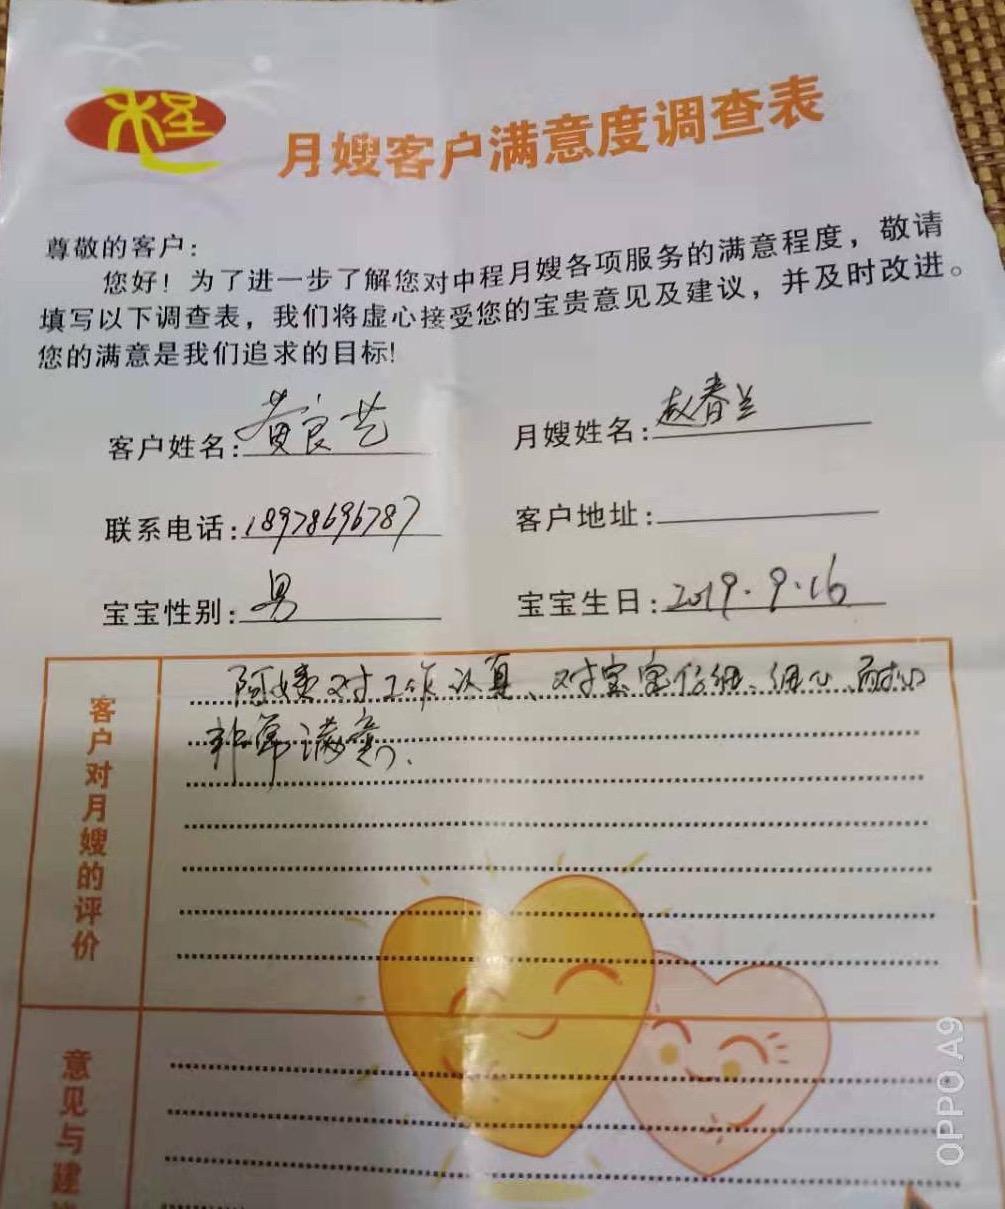 禾呈
月嫂客户满意度调查表
尊敬的客户：
您好！为了进一步了解您对中程月嫂各项服务的满意程度，敬请
填写以下调查表，我们将虚心接受您的宝贵意见及建议，并及时改进。
您的满意是我们追求的目标！
客户姓名：黄良艺 月嫂姓名：赵春兰
联系电话：18978696787 客户地址：
宝宝性别：男 宝宝生日：2019.9.16
客户对月嫂的评价
阿姨对工作认真、对宝宝仔细、细心、耐心
非常满意.
意见与建
OPPO A9